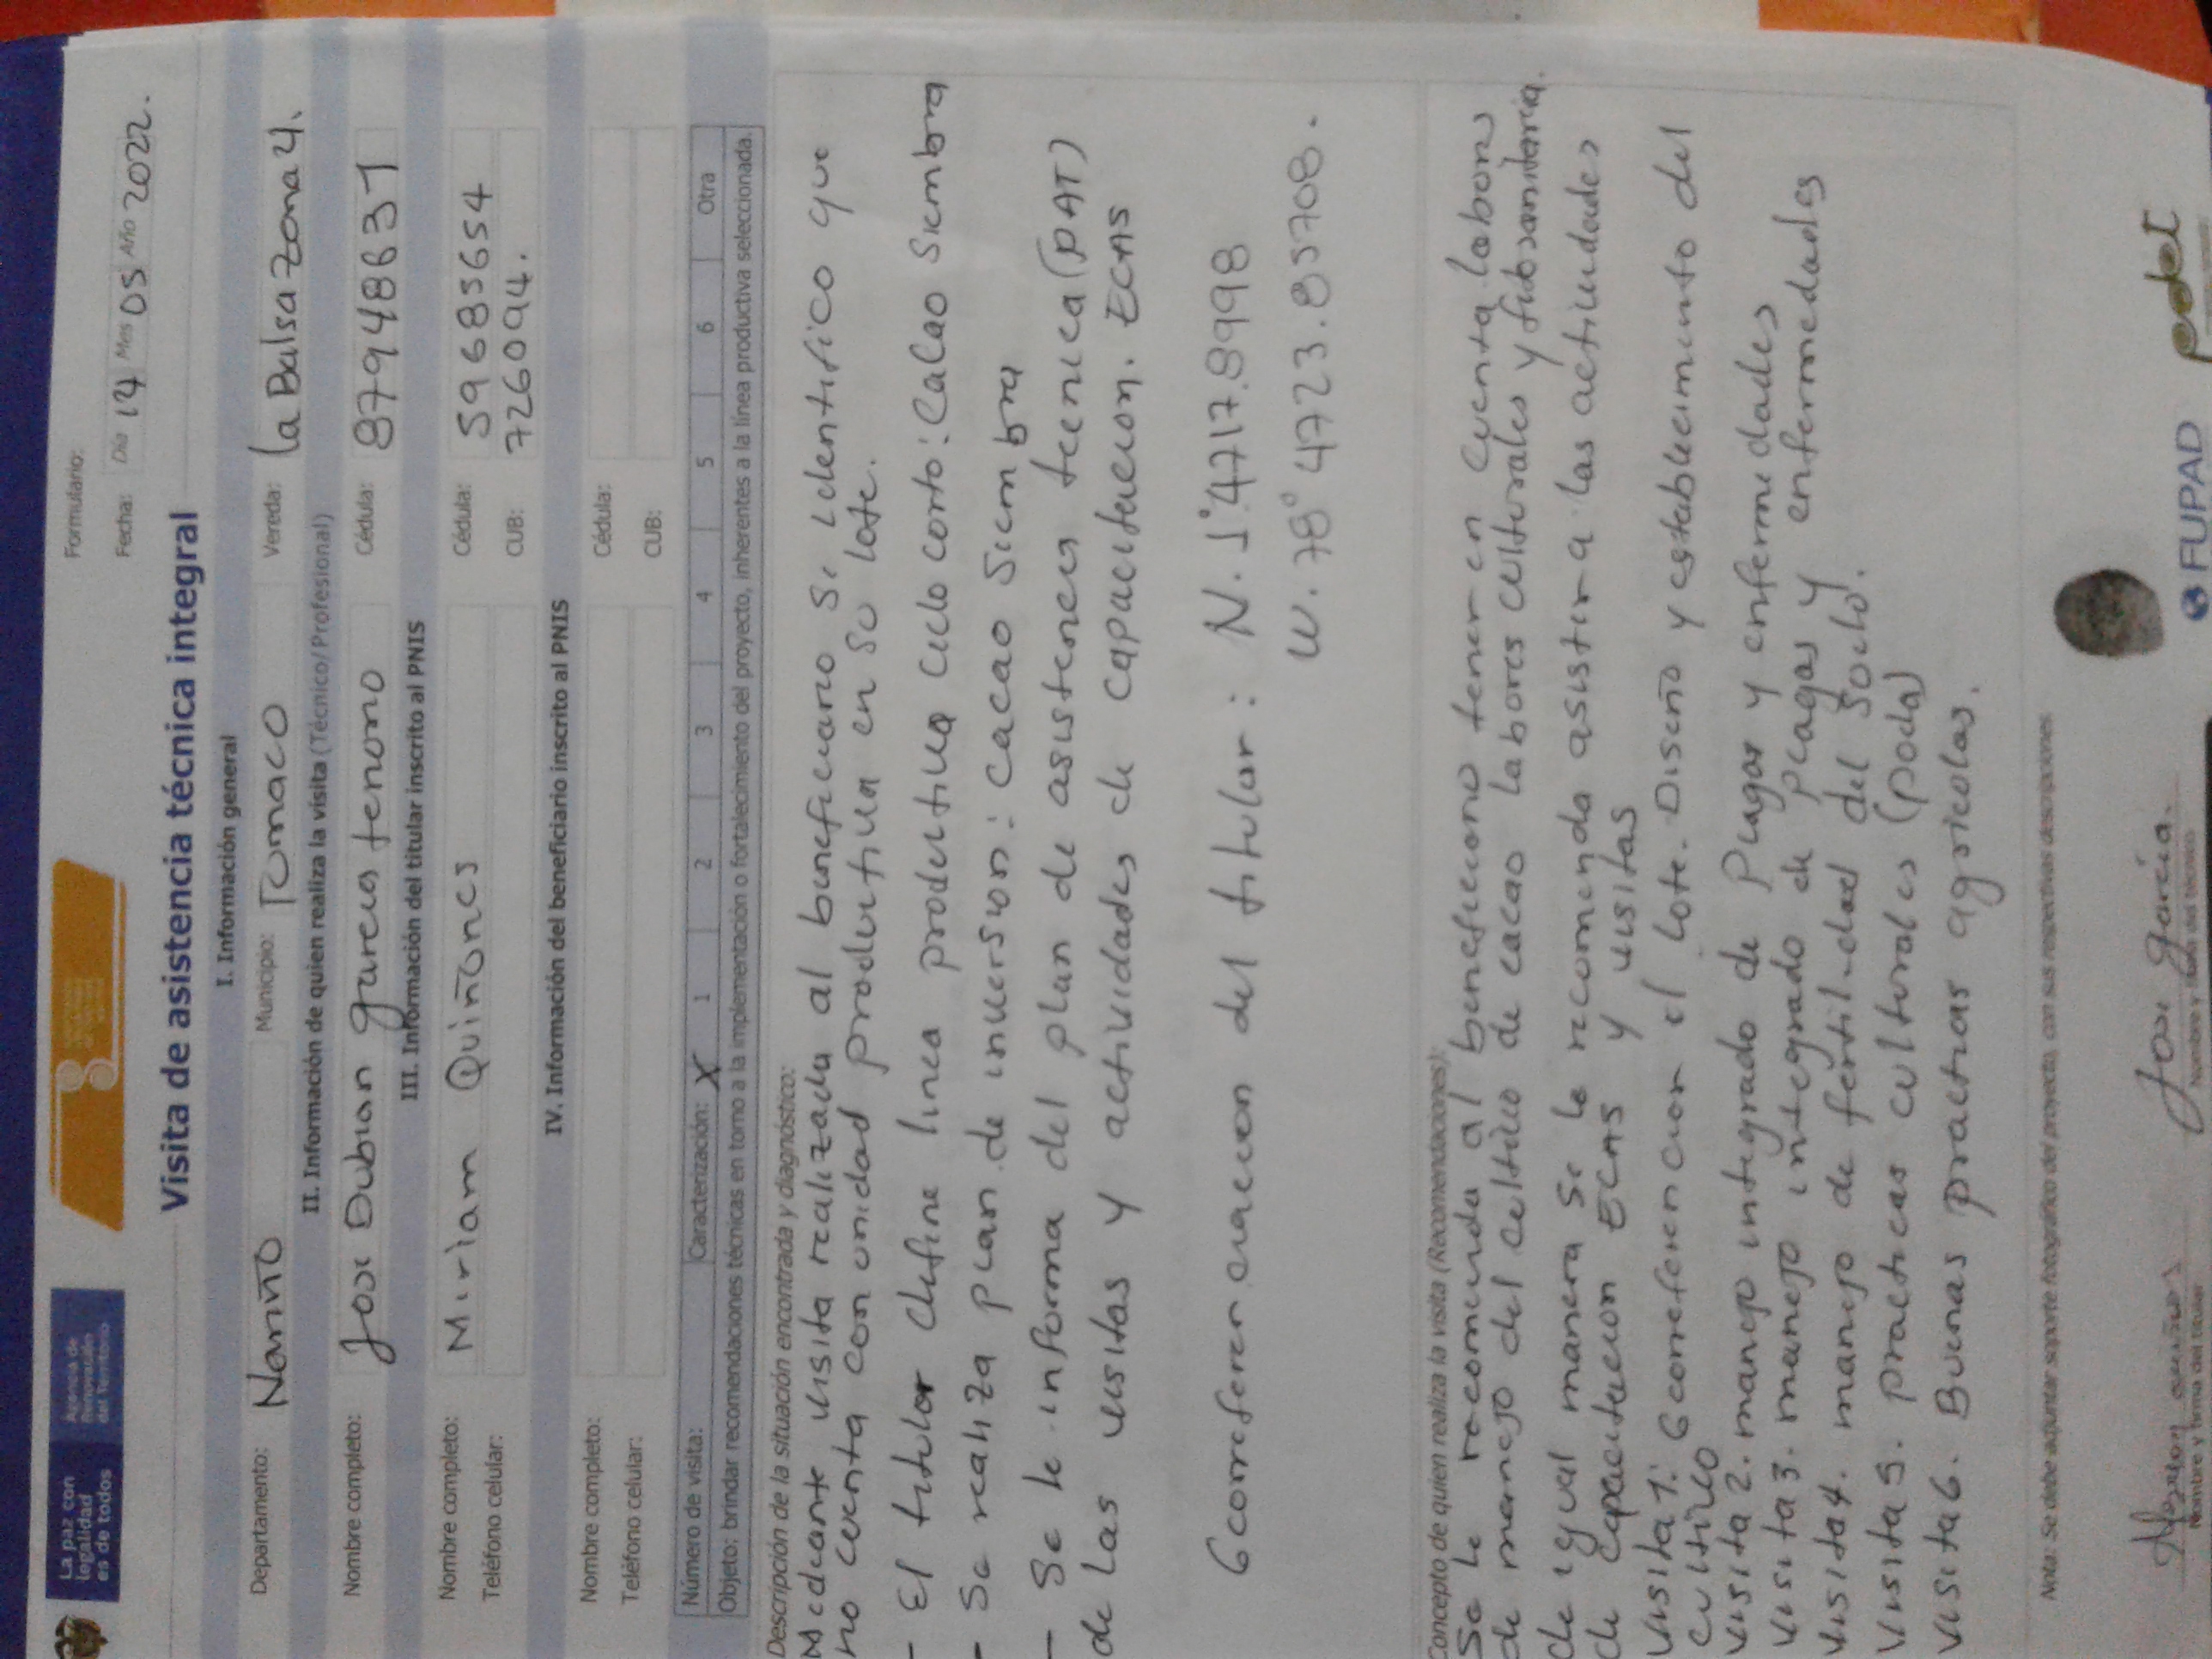 La paz con
legalidad
es de todos
Agencia de
Renovación
del Territorio
Formulario:
Fecha: Día 14 Mes 05 Año 2022.
Visita de asistencia técnica integral
I. Información general
Departamento: Nariño Municipio: Tumaco Vereda: la Balsa Zona 4.
II. Información de quien realiza la visita (Técnico/Profesional)
Nombre completo: Jose Dubian garcia tenorio Cédula: 87948837
III. Información del titular inscrito al PNIS
Nombre completo: Miriam Quiñones Cédula: 59685654
Teléfono celular: CUB: 726094.
IV. Información del beneficiario inscrito al PNIS
Nombre completo: Cédula:
Teléfono celular: CUB:
Número de visita: Caracterización: X 1 2 3 4 5 6 Otra
Objeto: brindar recomendaciones técnicas en torno a la implementación o fortalecimiento del proyecto, inherentes a la línea productiva seleccionada.
Descripción de la situación encontrada y diagnóstico:
Mediante visita realizada al beneficiario se identifico que
no cuenta con unidad productiva en su lote.
- El titular define linea productiva ciclo corto: Cacao siembra
- Se realiza plan de inversion: cacao siembra
- Se le informa del plan de asistencia tecnica (PAT)
de las visitas y actividades de capacitacion. ECAS
Georeferenciacion del titular: N. 1° 47 17.89998
W. 78° 47 23.85708.
Concepto de quien realiza la visita (Recomendaciones):
Se le recomienda al beneficiario tener en cuenta labores
de manejo del cultivo de cacao labores culturales y fitosanitaria.
de igual manera se le recomienda asistir a las actividades
de capacitacion ECAS y visitas
Visita 1: Georeferenciar el lote. Diseño y establecimiento del
cultivo
visita 2. manejo integrado de Plagas y enfermedades
visita 3. manejo integrado de plagas y enfermedades
visita 4. manejo de fertilidad del suelo.
visita 5. practicas culturales (poda)
visita 6. Buenas practicas agricolas.
Nota: Se debe adjuntar soporte fotográfico del proyecto, con sus respectivas descripciones
Jose garcia.
Nombre y firma del titular Nombre y firma del técnico
FUPAD
pdet